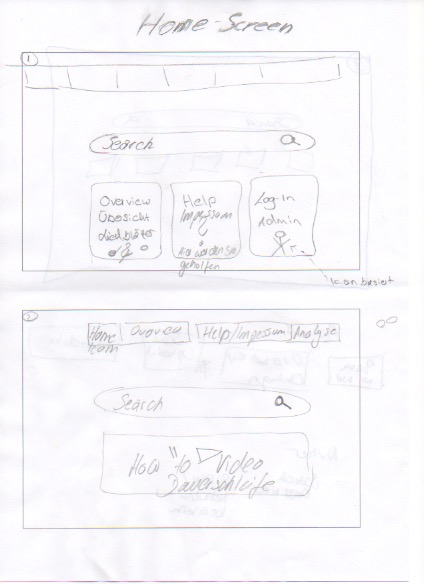 Home-Screen
1
Search
Overview
Übersicht
Liedblätter
Help
Impressum
Hier werden Sie
geholfen
Log-In
Admin
Icon basiert
2
Home
Team
Overview
Help/Impressum
Analyse
Search
How to Video
Dauerschleife